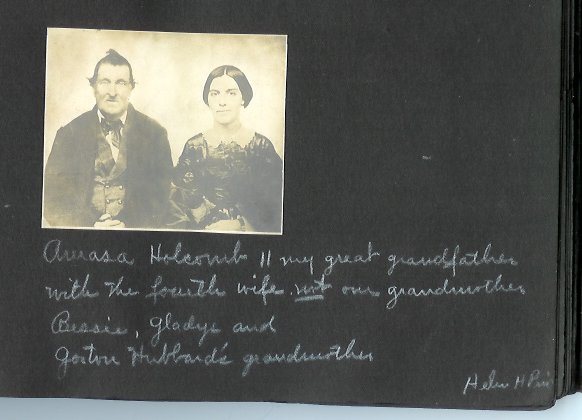 Amasa Holcomb II my great grandfather
with the fourth wife not our grandmother
Bessie, Gladys and
Hubbard's grandmother
Helen H